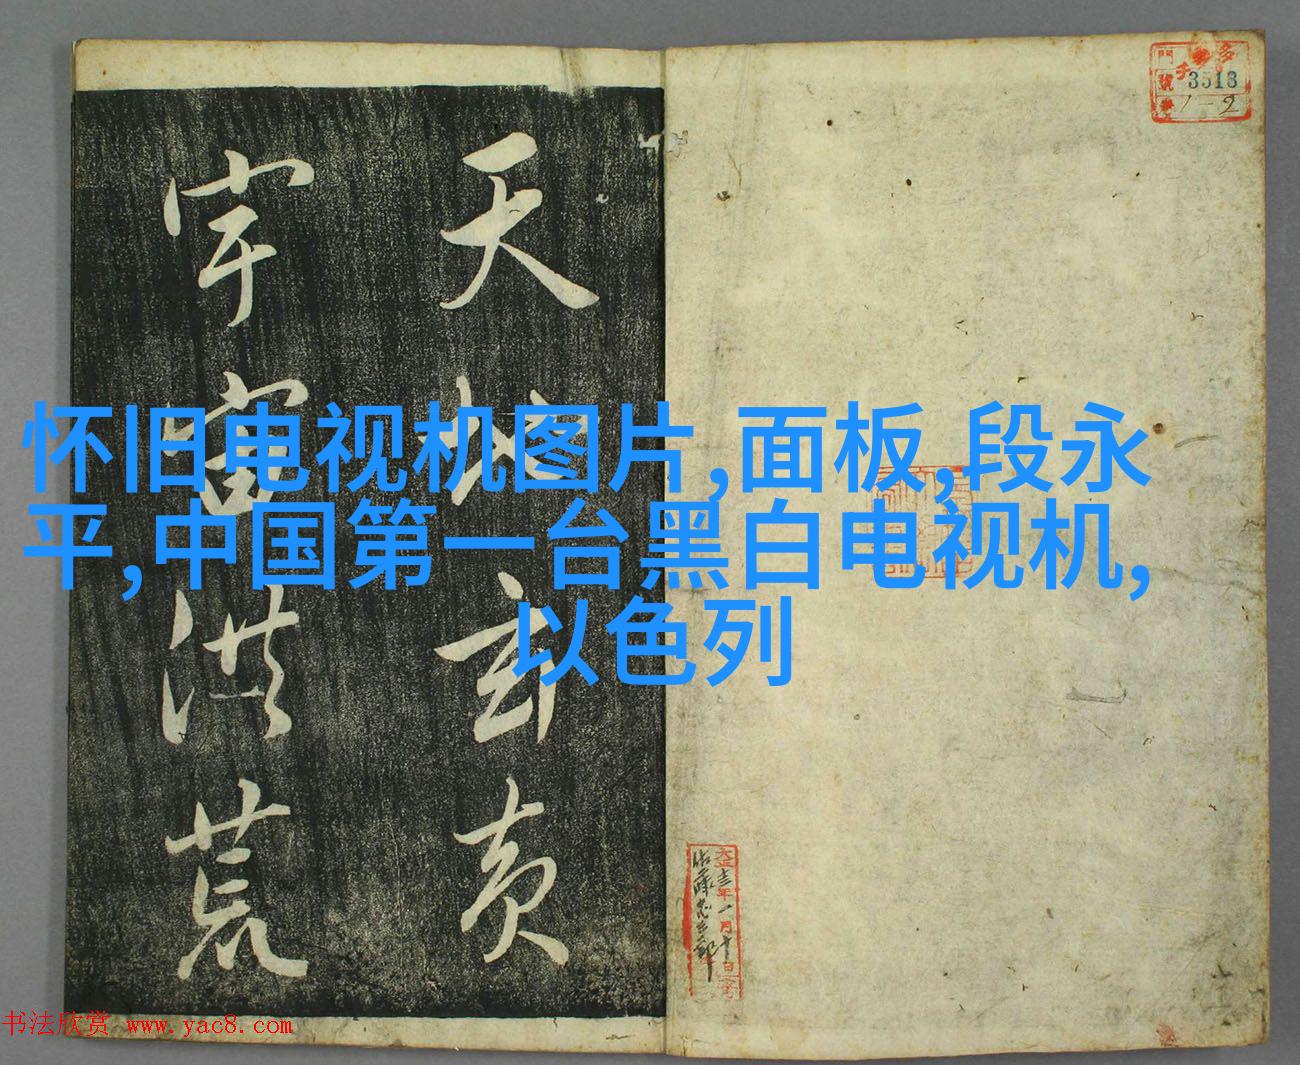 天地玄黄
宇宙洪荒
3513
1-2
怀旧电视机图片,面板,段永
平,中国第一台黑白电视机,
以色列
书法欣赏 www.yac8.com